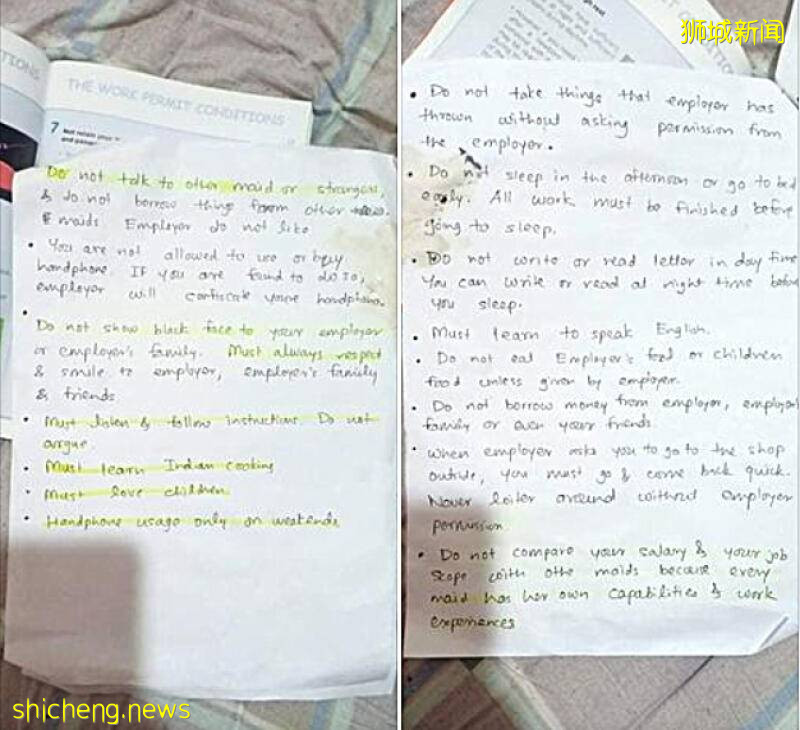 TIONS
THE WORK PERMIT CONDITIONS
7 Not retain your
and passp
Do not talk to other maid or strangers,
& do not borrow thing from other
maids Employer do not like
• You are not allowed to use or buy
handphone. If you are found to do so,
employer will confiscate your handphone.
•
Do not show black face to your employer
or employer's family. Must always respect
& smile to employer, employer's family
& friends
• Must listen & follow instructions. Do not
argue.
• Must learn Indian cooking
• Must love children
• Handphone usage only on weekends
shicheng.news
狮城新闻
• Do not take things that employer has
thrown without asking permission from
the employer.
• Do not sleep in the afternoon or go to bed
early. All work must be finished before
going to sleep.
• Do not write or read letter in day time
You can write or read at night time before
you sleep.
• Must learn to speak English.
• Do not eat Employer's food or children
food unless given by employer.
• Do not borrow money from employer, employer
family or even your friends.
• When employer asks you to go to the shop
outside, you must go & come back quick.
Never loiter around without employer
permission
• Do not compare your salary & your job
scope with othe maids because every
maid has her own capabilities & work
experiences